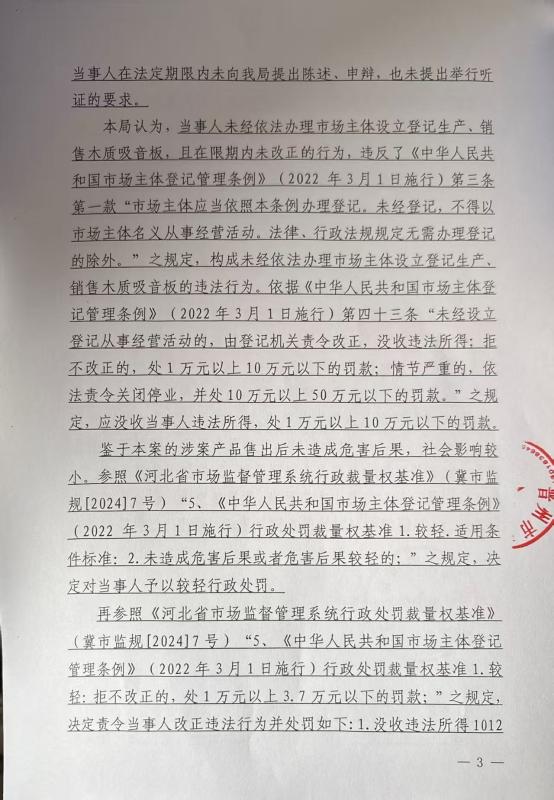 当事人在法定期限内未向我局提出陈述、申辩,也未提出举行听
证的要求。
本局认为,当事人未经依法办理市场主体设立登记生产、销
售木质吸音板,且在限期内未改正的行为,违反了《中华人民共
和国市场主体登记管理条例》(2022 年 3 月 1 日施行)第三条
第一款“市场主体应当依照本条例办理登记。未经登记,不得以
市场主体名义从事经营活动。法律、行政法规规定无需办理登记
的除外。”之规定,构成未经依法办理市场主体设立登记生产、
销售木质吸音板的违法行为。依据《中华人民共和国市场主体登
记管理条例》(2022 年 3 月 1 日施行)第四十三条“未经设立
登记从事经营活动的,由登记机关责令改正,没收违法所得;拒
不改正的,处 1 万元以上 10 万元以下的罚款;情节严重的,依
法责令关闭停业,并处 10 万元以上 50 万元以下的罚款。”之规
定,应没收当事人违法所得,处 1 万元以上 10 万元以下的罚款。
鉴于本案的涉案产品售出后未造成危害后果,社会影响较
小。参照《河北省市场监督管理系统行政裁量权基准》(冀市监
规[2024]7 号)“5、《中华人民共和国市场主体登记管理条例》
(2022 年 3 月 1 日施行)行政处罚裁量权基准 1.较轻.适用条
件标准:2.未造成危害后果或者危害后果较轻的;”之规定,决
定对当事人予以较轻行政处罚。
再参照《河北省市场监督管理系统行政处罚裁量权基准》
(冀市监规[2024]7 号)“5、《中华人民共和国市场主体登记
管理条例》(2022 年 3 月 1 日施行)行政处罚裁量权基准 1.较
轻:拒不改正的,处 1 万元以上 3.7 万元以下的罚款;”之规定,
决定责令当事人改正违法行为并处罚如下:1.没收违法所得 1012
— 3 —
晋州市